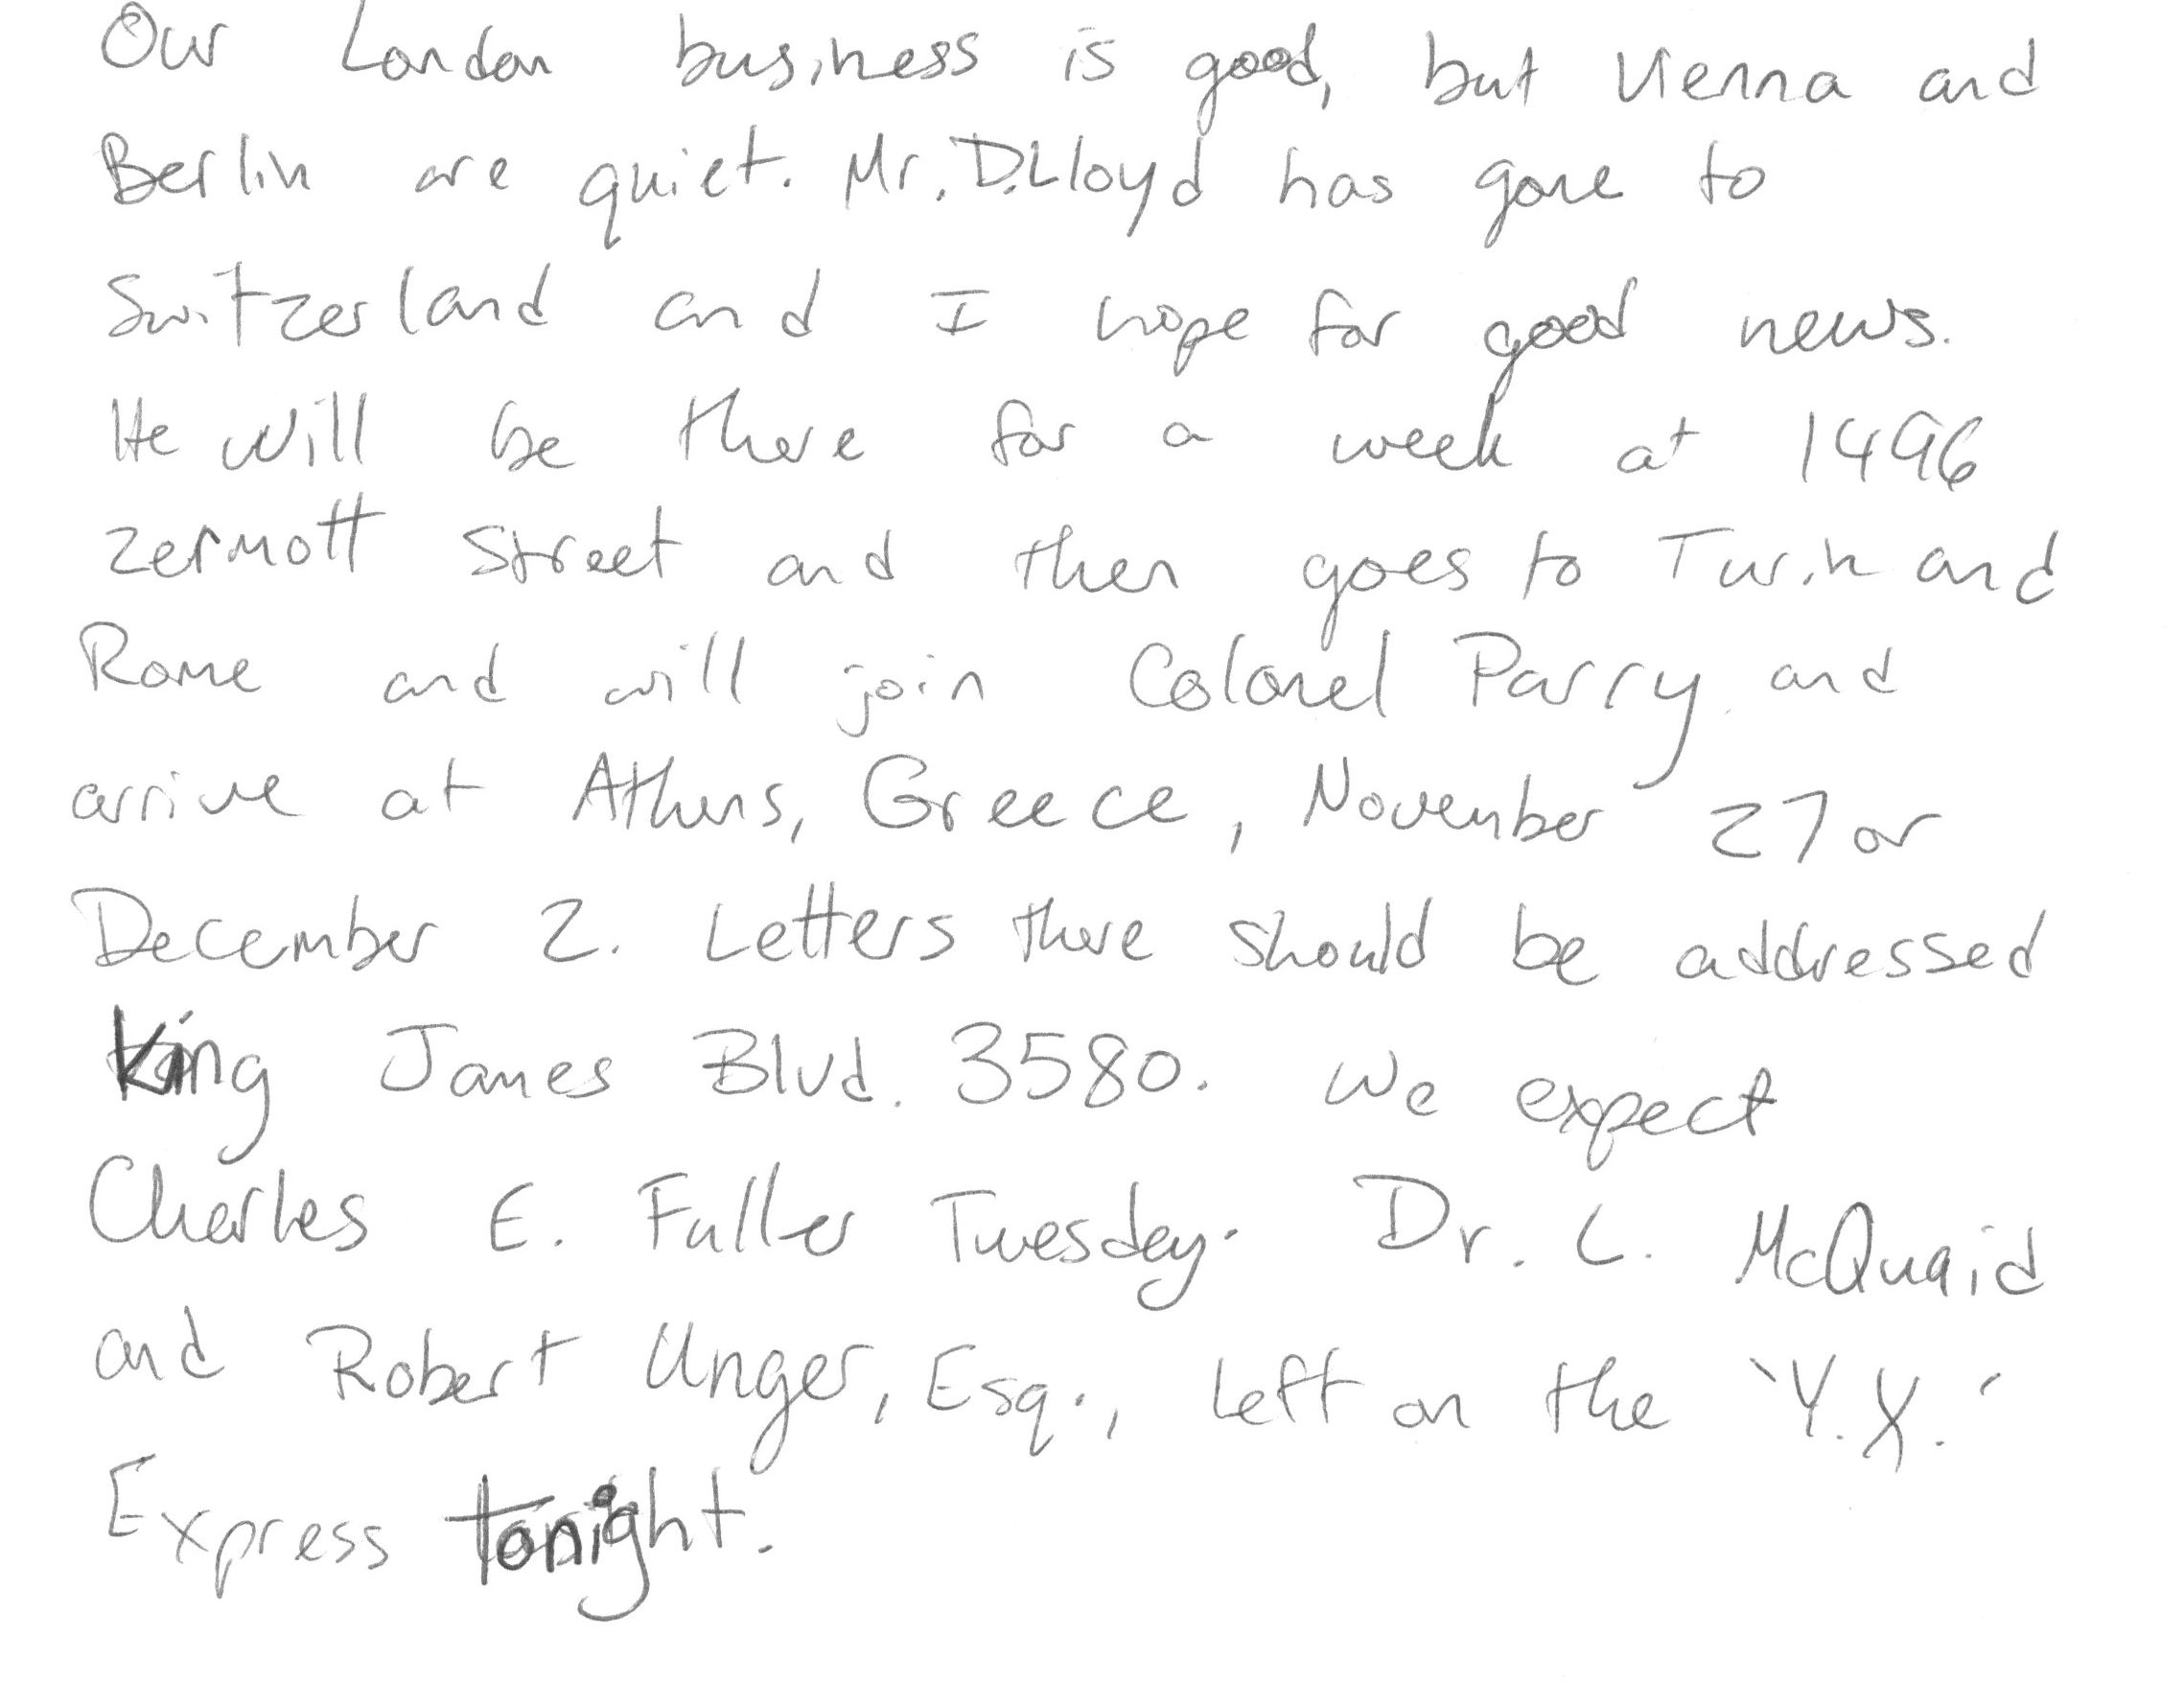 Our London business is good, but Vienna and
Berlin are quiet. Mr. D.Lloyd has gone to
Switzerland and I hope for good news.
He will be there for a week at 1496
Zermott Street and then goes to Turin and
Rome and will join Colonel Parry and
arrive at Athens, Greece, November 27 or
December 2. Letters there should be addressed
King James Blvd. 3580. We expect
Charles E. Fuller Tuesday. Dr. L. McQuaid
and Robert Unger, Esq., left on the 'Y.X.'
Express tonight.